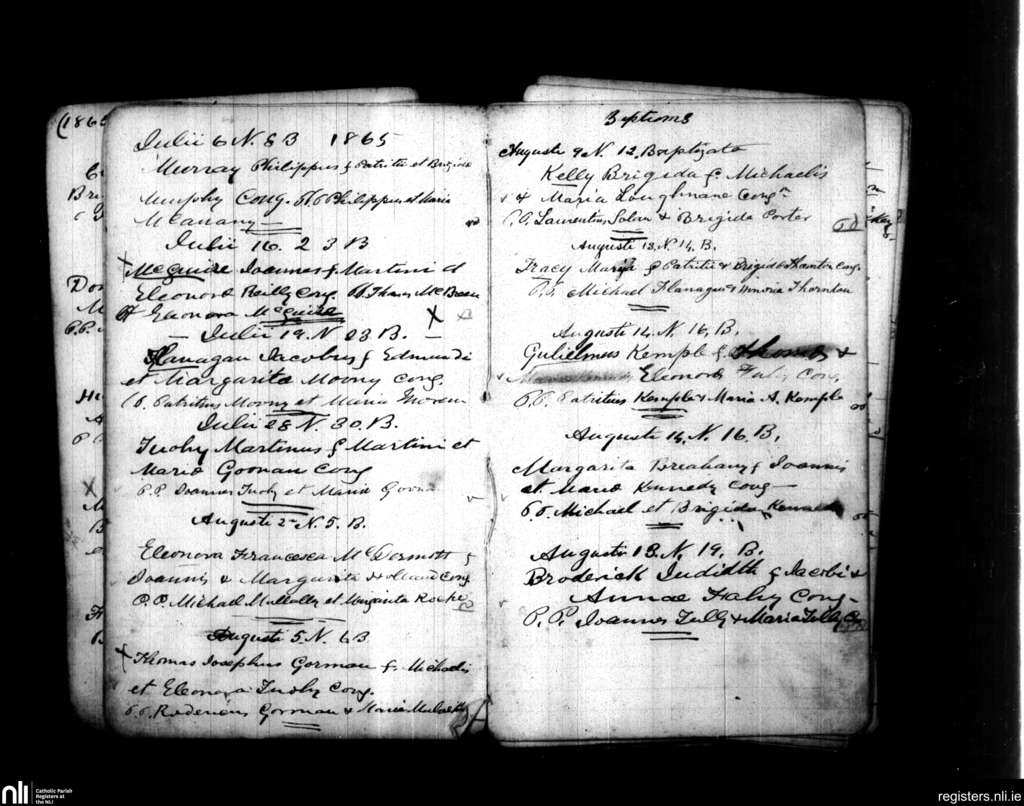 (1865
Julii 6 N. 8 B 1865
Murray Philippus f Patritii et Brigida
Murphy Cong. P.P. Philippus et Maria
McCanany
Julii 16. 23 B
McGuire Joannes f Martini et
Eleonora Reilly Cong. P.P. Thomas McBrean
et Eleonora McGuire
Julii 19. N 23. B.
Flanagan Jacobus f Edmundi
et Margarita Moony Cong.
P. Patritius Moony et Maria Moran
Julii 28 N. 30. B.
Tuohy Martinus f Martini et
Maria Goonan Cong
P.P. Joannes Tuohy et Maria
Augusti 2 N. 5. B.
Eleonora Francesca McDermott f
Joannis & Margarita Holland Cong
P.P. Michael Mullally et Margarita Roche
Augusti 5. N. 6 B
Thomas Josephus Gorman f. Michaelis
et Eleonora Tuohy Cong.
P.P. Rodericus Gorman & Maria
Baptisms
Augusti 9 N. 12. Baptizata
Kelly Brigida f. Michaelis
& Maria Loughnane Cong
P.P. Laurentius & Brigida Porter
Augusti 13. N. 14. B.
Tracy Maria f Patritii & Brigida Cong.
P.P. Michael Flanagan & Honoria Thornton
Augusti 14. N 16. B.
Gulielmus Kemple f. Thomas &
Eleonora Fahy Cong.
P.P. Patritius Kemple & Maria A. Kemple
Augusti 14. N. 16. B.
Margarita Breahany f Joannis
et Maria Kennedy Cong
P.P. Michael et Brigida Kennedy
Augusti 18. N. 19. B.
Broderick Judidth f Jacobi &
Annae Fahy Cong
P. P. Joannes Tully & Maria Tully
nli Catholic Parish
Registers at
the NLI
registers.nli.ie